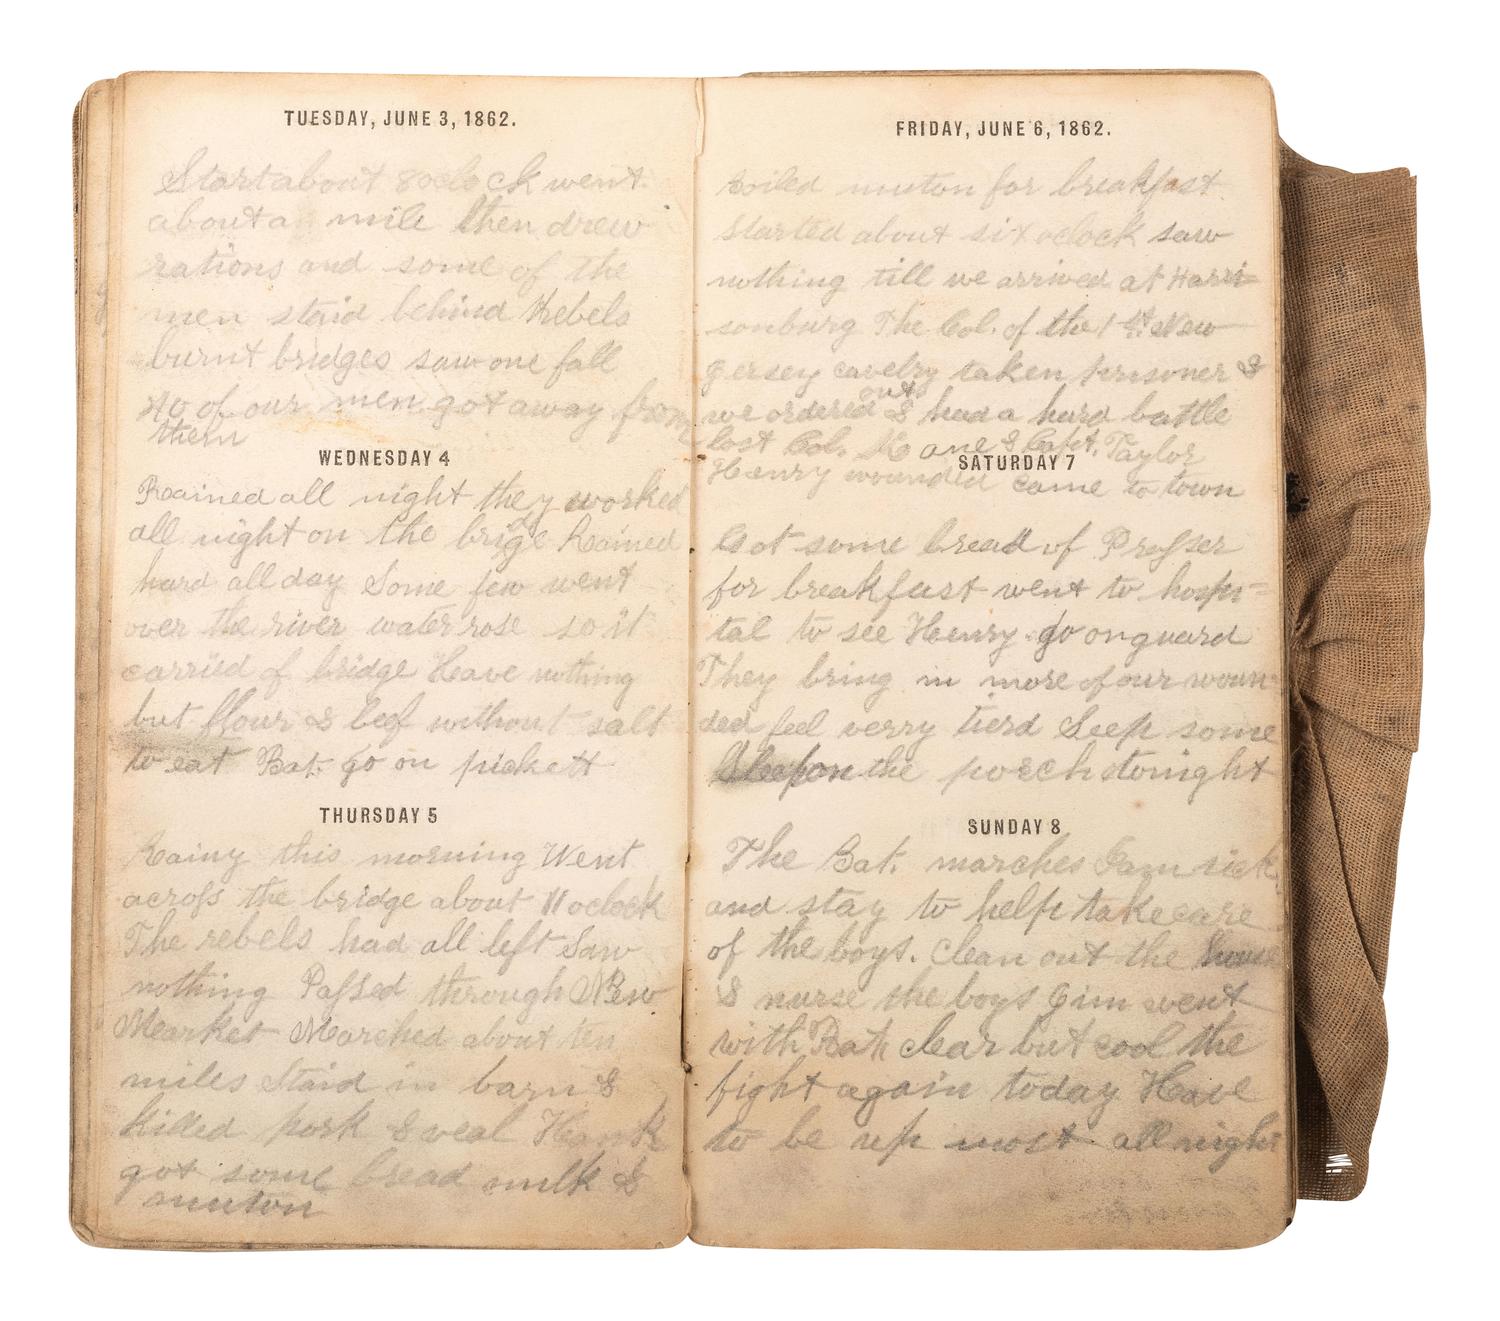 TUESDAY, JUNE 3, 1862.
Start about 8 oclock went
about a mile then drew
rations and some of the
men staid behind Rebels
burnt bridges saw one fall
40 of our men got away from
them
WEDNESDAY 4
Rained all night they worked
all night on the bridge Rained
hard all day Some few went
over the river water rose so it
carried of bridge Have nothing
but flour & beef without salt
to eat Bat. go on pickett
THURSDAY 5
Rainy this morning Went
across the bridge about 11 oclock
The rebels had all left Saw
nothing Passed through New
Mearket Marched about ten
miles Staid in barn &
killed pork & veal Hank
got some bread milk &
muton
FRIDAY, JUNE 6, 1862.
boiled muton for breakfast
started about six oclock saw
nothing till we arrived at Harri=
sonburg The Col. of the 1st New
Jersey cavelry taken prisoner &
we ordered out & had a hard battle
lost Col. K ane & Capt. Taylor
Henry wounded came to town
SATURDAY 7
Got some bread of Prosser
for breakfast went to hospi=
tal to see Henry. go on guard
They bring in more of our woun=
ded feel verry tierd Seep some
Sleep on the porch tonight
SUNDAY 8
The Bat. marches I am sick
and stay to help take care
of the boys. Clean out the house
& nurse the boys Jim went
with Bat clear but cool the
fight again today Have
to be up most all night